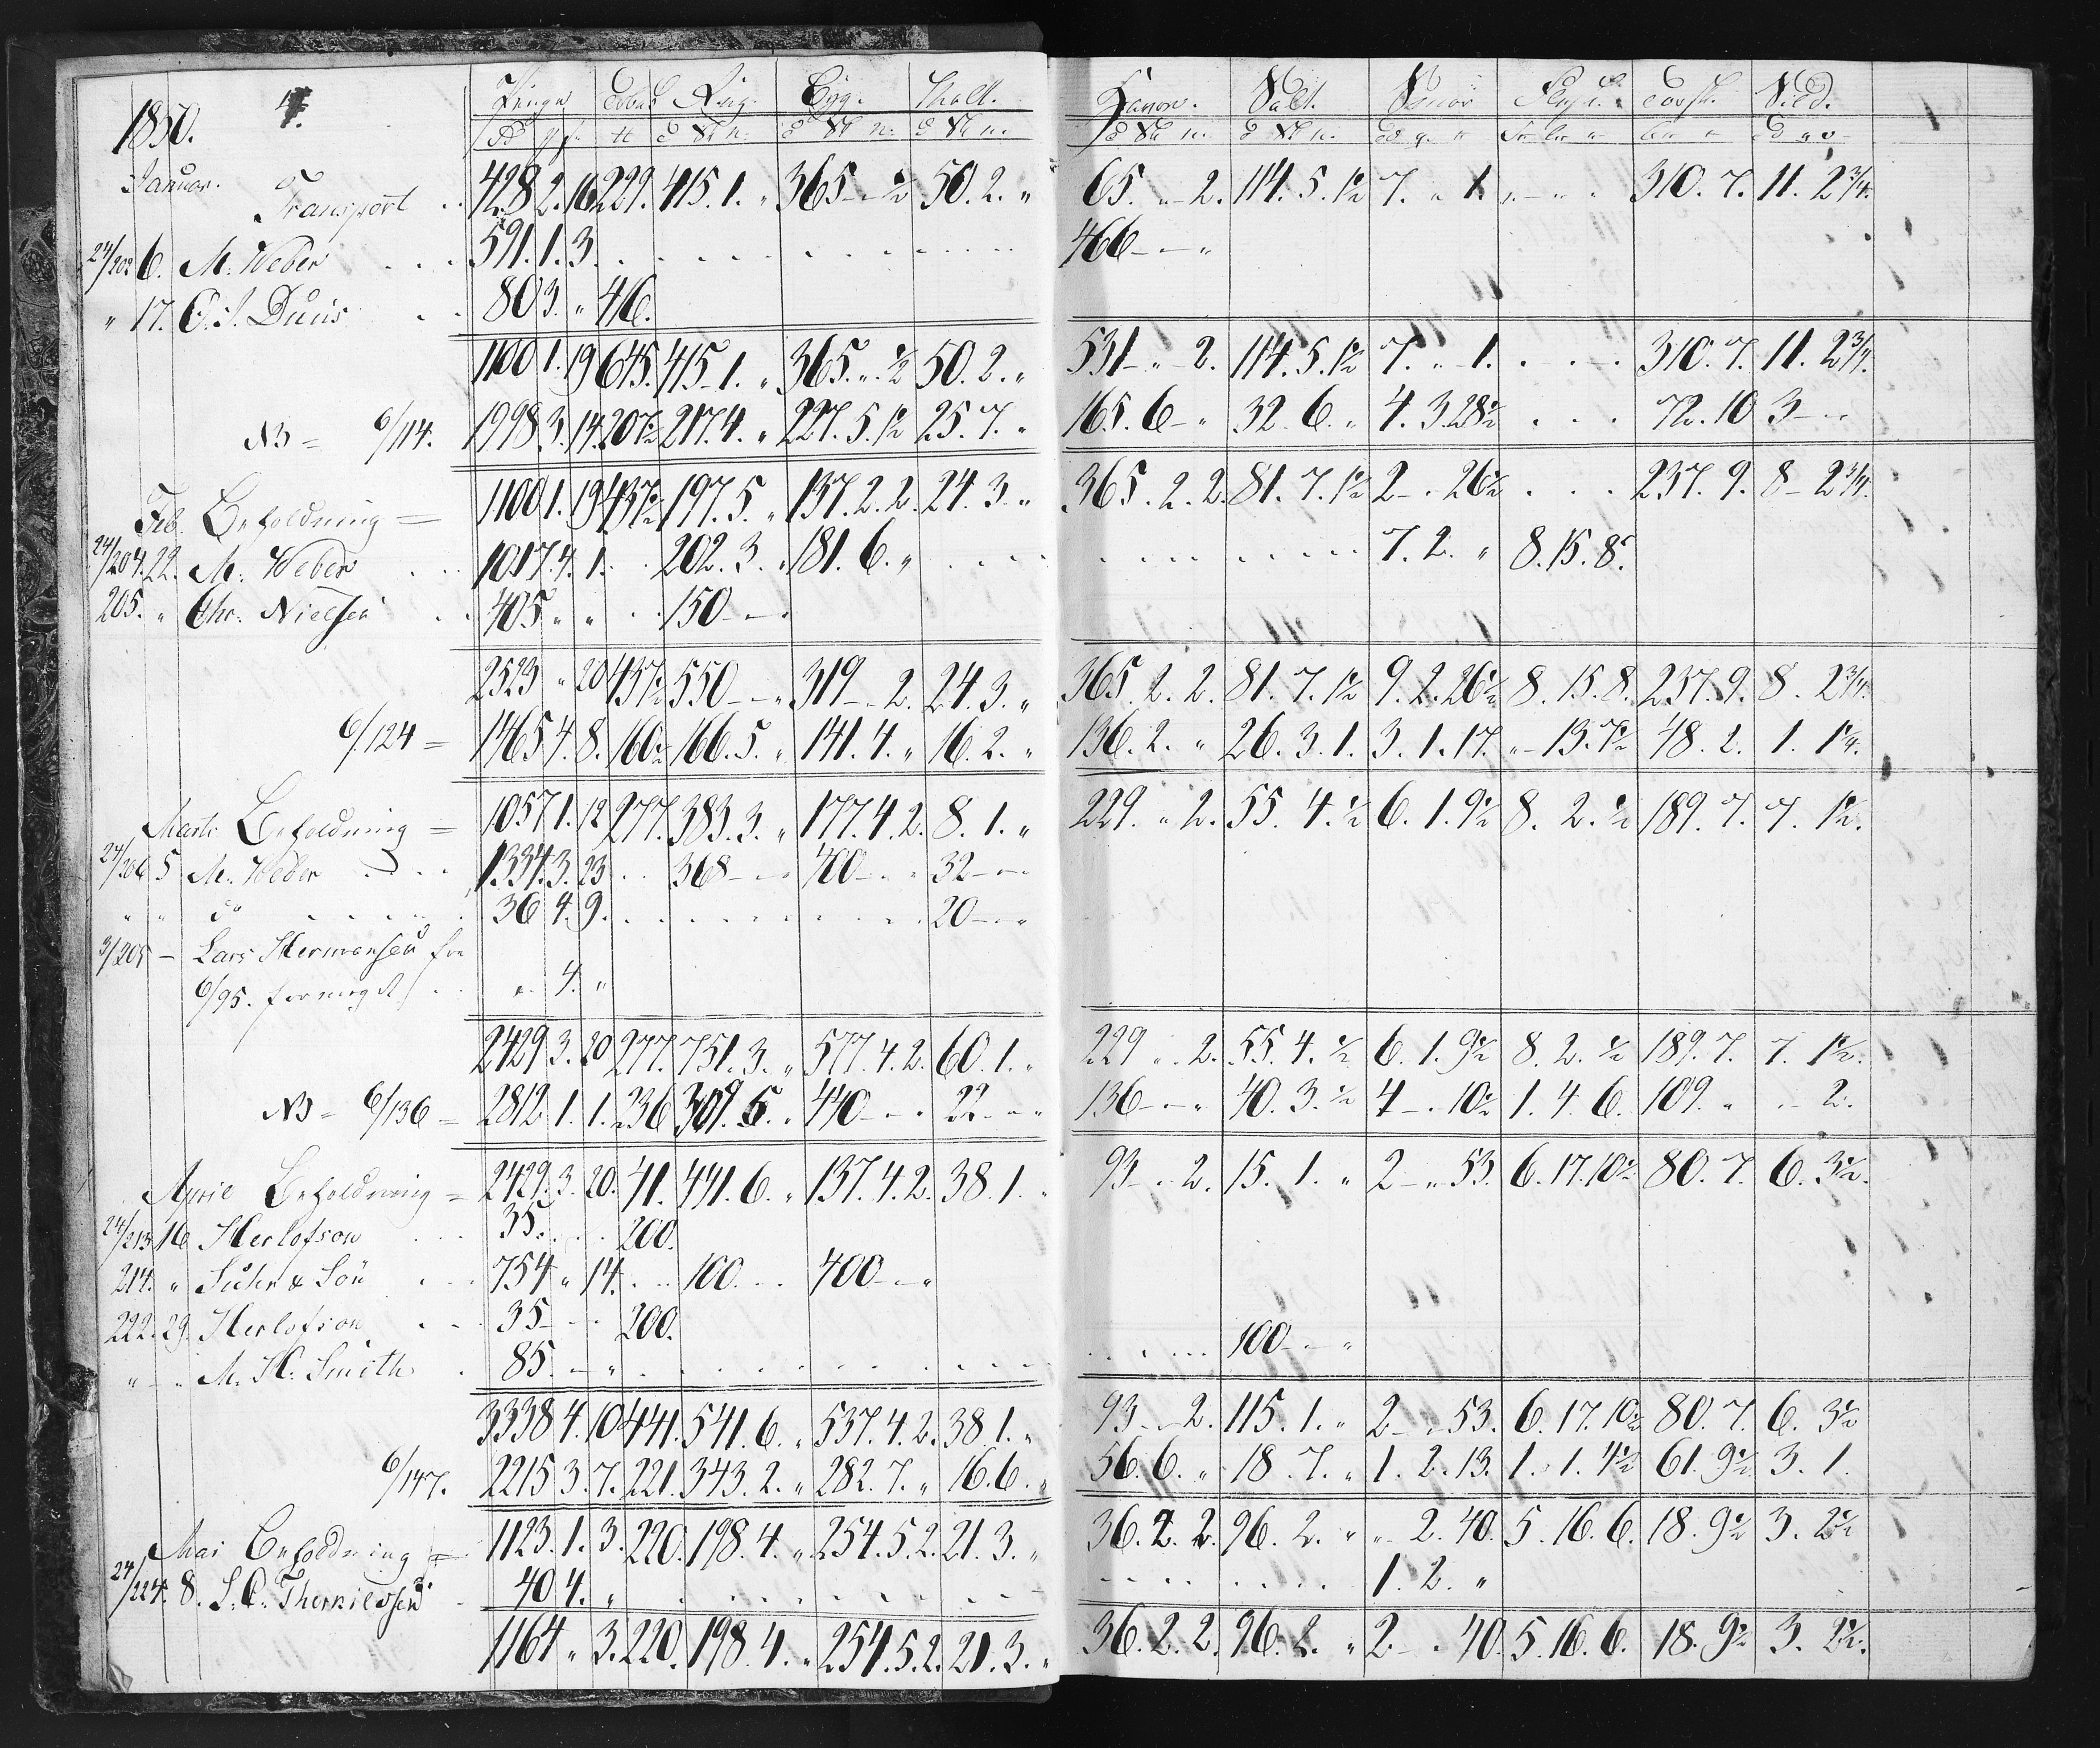 1850. 4.
Penge Tobak Rug. Byg. Malt. Havre. Salt. Smør Flesk. Torsk. Sild.
Januar. Transport . . 428 2. 16 229. 415. 1. „ 365 - „ ½ 50. 2. „ 65. „ 2. 114. 5. 1½ 7. „ 1. 310. 7. 11. 2¾.
24/203 6. M. Weber . . . 591. 1. 3. 466 - - „
„ 17. C. J. Duus . . 80 3. „ 416.
1100 1. 19 645. 415. 1. „ 365. „ ½ 50. 2. „ 531 - „ 2. 114. 5. 1½ 7. „ 1. 310. 7. 11. 2¾.
NB = 6/114. 1998 3. 14. 207½ 217. 4. „ 227. 5. 1½ 25. 7. „ 165. 6 - „ 32. 6. „ 4. 3. 28½ 72. 10 3 - -
Feb. Beholdning = 1100 1. 19 437½ 197. 5. „ 137. 2. 2. 24. 3. „ 365. 2. 2. 81. 7. 1½ 2 - . 26½ 237. 9. 8 - 2¾.
24/204. 22. M. Weber . . . 1017. 4. 1. 202. 3. „ 181. 6. „ 7. 2. „ 8. 15. 8.
205. „ Chr. Nielsen . . 405 „ „ 150 - - .
2523 „ 20 437½ 550 - - „ 319 - . 2. 24. 3. „ 365. 2. 2. 81. 7. 1½ 9. 2. 26½ 8. 15. 8. 237. 9. 8. 2¾.
6/124 = 1465 4. 8. 160½ 166. 5. „ 141. 4. „ 16. 2. „ 136. 2. „ 26. 3. 1. 3. 1. 17. „ - 13. 7½ 48. 2. 1. 1¼.
Marts Beholdning = 1057 1. 12 277. 383. 3. „ 177. 4. 2. 8. 1. „ 229. „ 2. 55. 4. ½ 6. 1. 9½ 8. 2. ½ 189. 7. 7. 1½.
24/206 5 M. Weber . . . 1334. 3. 23 . . 368 - - „ 400 - . „ 32 - - „
„ „ do . . . . . 36 4. 9. 20 - - „
3/205 - Lars Hermansen fra
6/95. . . . „ 4. „
2429 3. 20 277. 751. 3. „ 577. 4. 2. 60. 1. „ 229 „ . 2. 55. 4. ½ 6. 1. 9½ 8. 2. ½ 189. 7. 7. 1½.
NB = 6/136 = 2812 1. 1. 236 309. 5. „ 440 - - „ 22 - - „ 136 - - „ 40. 3. ½ 4 - . 10½ 1. 4. 6. 109. „ „ - 2.
April Beholdning = 2429. 3. 20. 41. 441. 6. „ 137. 4. 2. 38. 1. „ 93 - . 2. 15. 1. „ 2 - „ 53. 6. 17. 10½ 80. 7. 6. 3½.
24/213. 16 Herlofson . . . 35. . . . 200.
214. „ Suhr & Søn . . . 754 „ 14. . . 100 . . . 400 - - „
222. 29. Herlofson . . . 35 - . . 200.
„ - „ M. H. Smith . 85. - „ . 100 - - „
3338 4. 10 441. 541. 6. „ 537. 4. 2. 38. 1. „ 93 - . 2. 115. 1. „ 2 - „ 53. 6. 17. 10½ 80. 7. 6. 3½
6/147. 2215 3. 7. 221. 343. 2. „ 282. 7. „ 16. 6. „ 56. 6. „ 18. 7. „ 1. 2. 13. 1. 1. 4½ 61. 9½ 3. 1.
Mai Beholdning = 1123. 1. 3. 220. 198. 4. „ 254. 5. 2. 21. 3. „ 36. 2. 2. 96. 2. „ „ 2. 40. 5. 16. 6. 18. 9½ 3. 2½
24/224. 8. S. C. Therkildsen . 40 4. „ 1. 2. „
1164 „ 3. 220. 198. 4. „ 254. 5. 2. 21. 3. „ 36. 2. 2. 96. 2. „ 2. - . 40. 5. 16. 6. 18. 9½ 3. 2½.